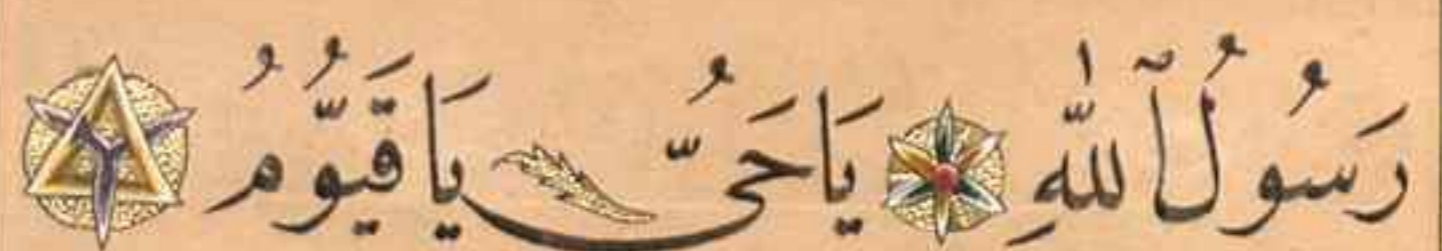 رَسُولُ ٱللّٰهِ يَا حَىُّ يَا قَيُّومُ